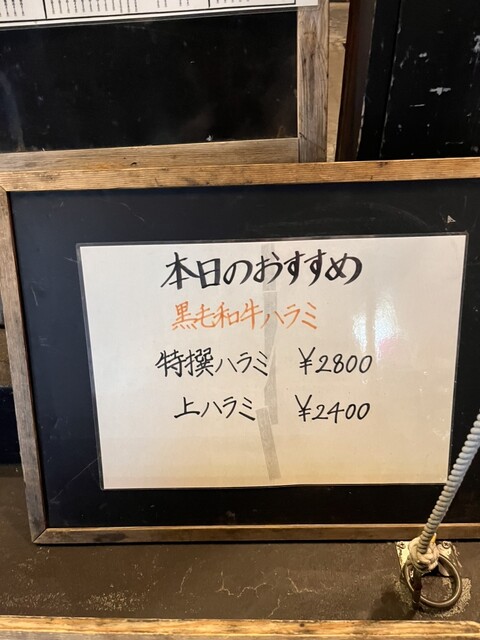 本日のおすすめ
黒毛和牛ハラミ
特撰ハラミ ¥2800
上ハラミ ¥2400